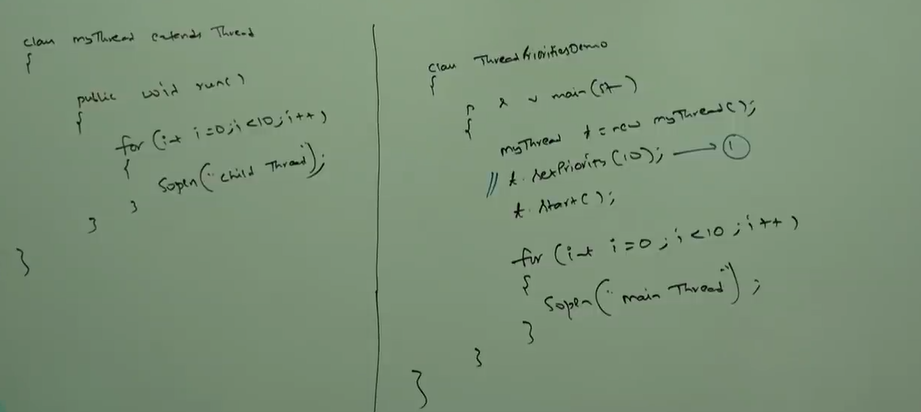 class myThread extends Thread
{
public void run()
{
for (int i=0;i<10;i++)
{
Sopln("child Thread");
}
}
}
class ThreadPrioritiesDemo
{
p s v main(St)
{
myThread t = new myThread();
// t.setPriority(10); → ①
t.start();
for (int i=0;i<10;i++)
{
Sopln("main Thread");
}
}
}